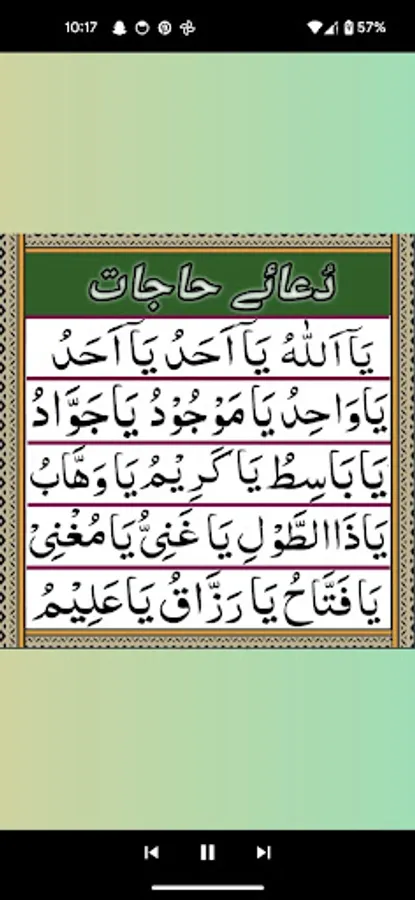 10:17
57%
دُعائے حاجات
يَآ اَللّٰهُ يَآ اَحَدُ يَآ اَحَدُ
يَا وَاحِدُ يَا مَوْجُوْدُ يَا جَوَّادُ
يَا بَاسِطُ يَا كَرِيْمُ يَا وَهَّابُ
يَا ذَا الطَّوْلِ يَا غَنِىُّ يَا مُغْنِىْ
يَا فَتَّاحُ يَا رَزَّاقُ يَا عَلِيْمُ